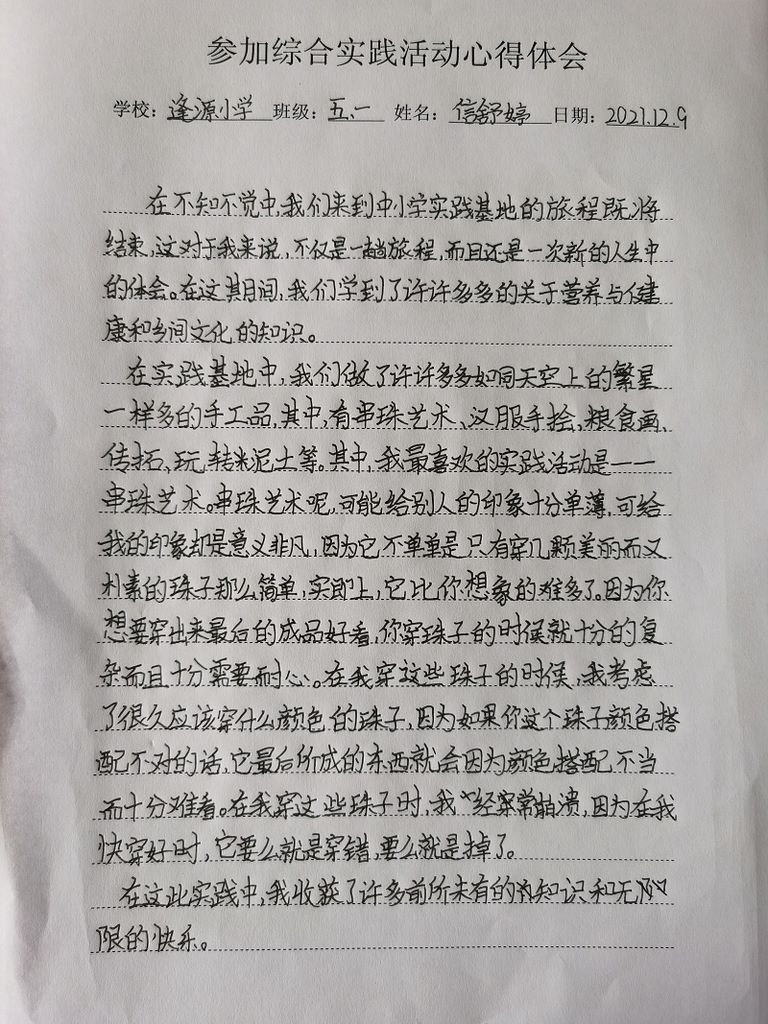 参加综合实践活动心得体会
学校：逢源小学 班级：五、一 姓名：信舒婷 日期：2021.12.9
在不知不觉中，我们来到中小学实践基地的旅程既将
结束，这对于我来说，不仅是一趟旅程，而且还是一次新的人生中
的体会。在这其间，我们学到了许许多多的关于营养与健
康和乡间文化的知识。
在实践基地中，我们做了许许多多如同天空上的繁星
一样多的手工品，其中，有串珠艺术、汉服手绘，粮食画、
传拓、玩转泥土等。其中，我最喜欢的实践活动是——
串珠艺术。串珠艺术呢，可能给别人的印象十分单薄，可给
我的印象却是意义非凡，因为它不单单是只有穿几颗美丽而又
朴素的珠子那么简单，实际上，它比你想象的难多了。因为你
想要穿出来最后的成品好看，你穿珠子的时侯就十分的复
杂而且十分需要耐心。在我穿这些珠子的时侯，我考虑
了很久应该穿什么颜色的珠子，因为如果你这个珠子颜色搭
配不对的话，它最后所成的东西就会因为颜色搭配不当
而十分难看。在我穿这些珠子时，我经常崩溃，因为在我
快穿好时，它要么就是穿错，要么就是掉了。
在这此实践中，我收获了许多前所未有的知识和无
限的快乐。